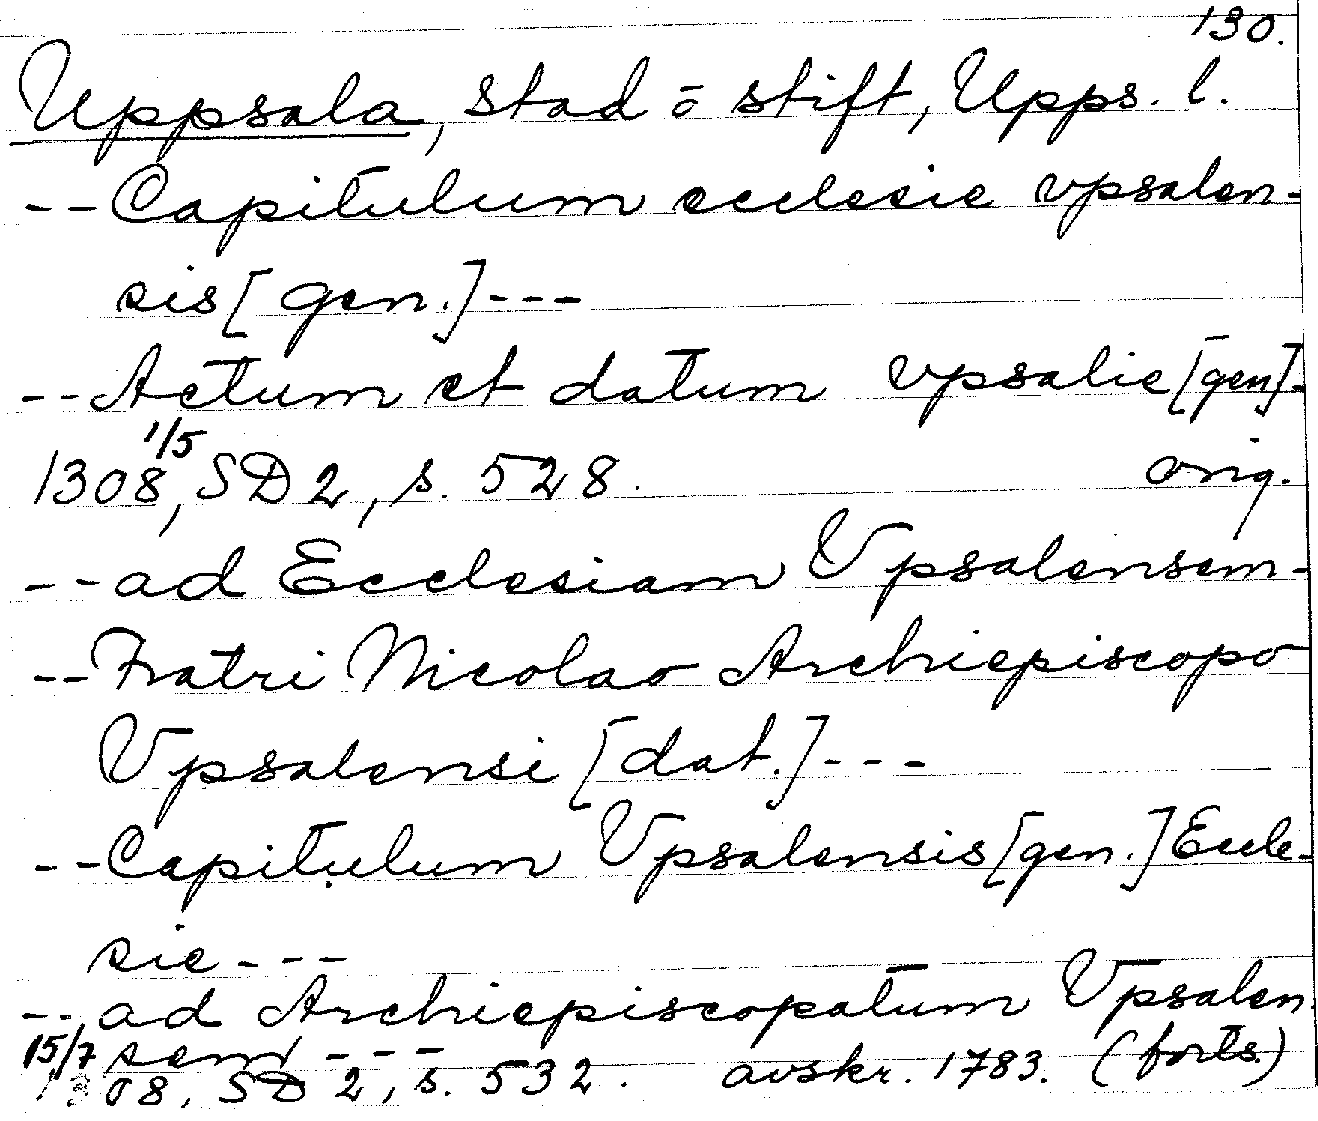 130.
Uppsala, stad o stift, Upps. l.
--Capitulum ecclesie vpsalen-
sis [gen.]---
--Actum et datum vpsalie [gen]-
1308 1/5, SD 2, s. 528. orig.
--ad Ecclesiam Vpsalensem-
--Fratri Nicolao Archiepiscopo
Vpsalensi [dat.]---
--Capitulum Vpsalensis [gen.] Eccle-
sie---
--ad Archiepiscopatum Vpsalen
sem ---
15/7 1308, SD 2, s. 532. avskr. 1783. (forts.)